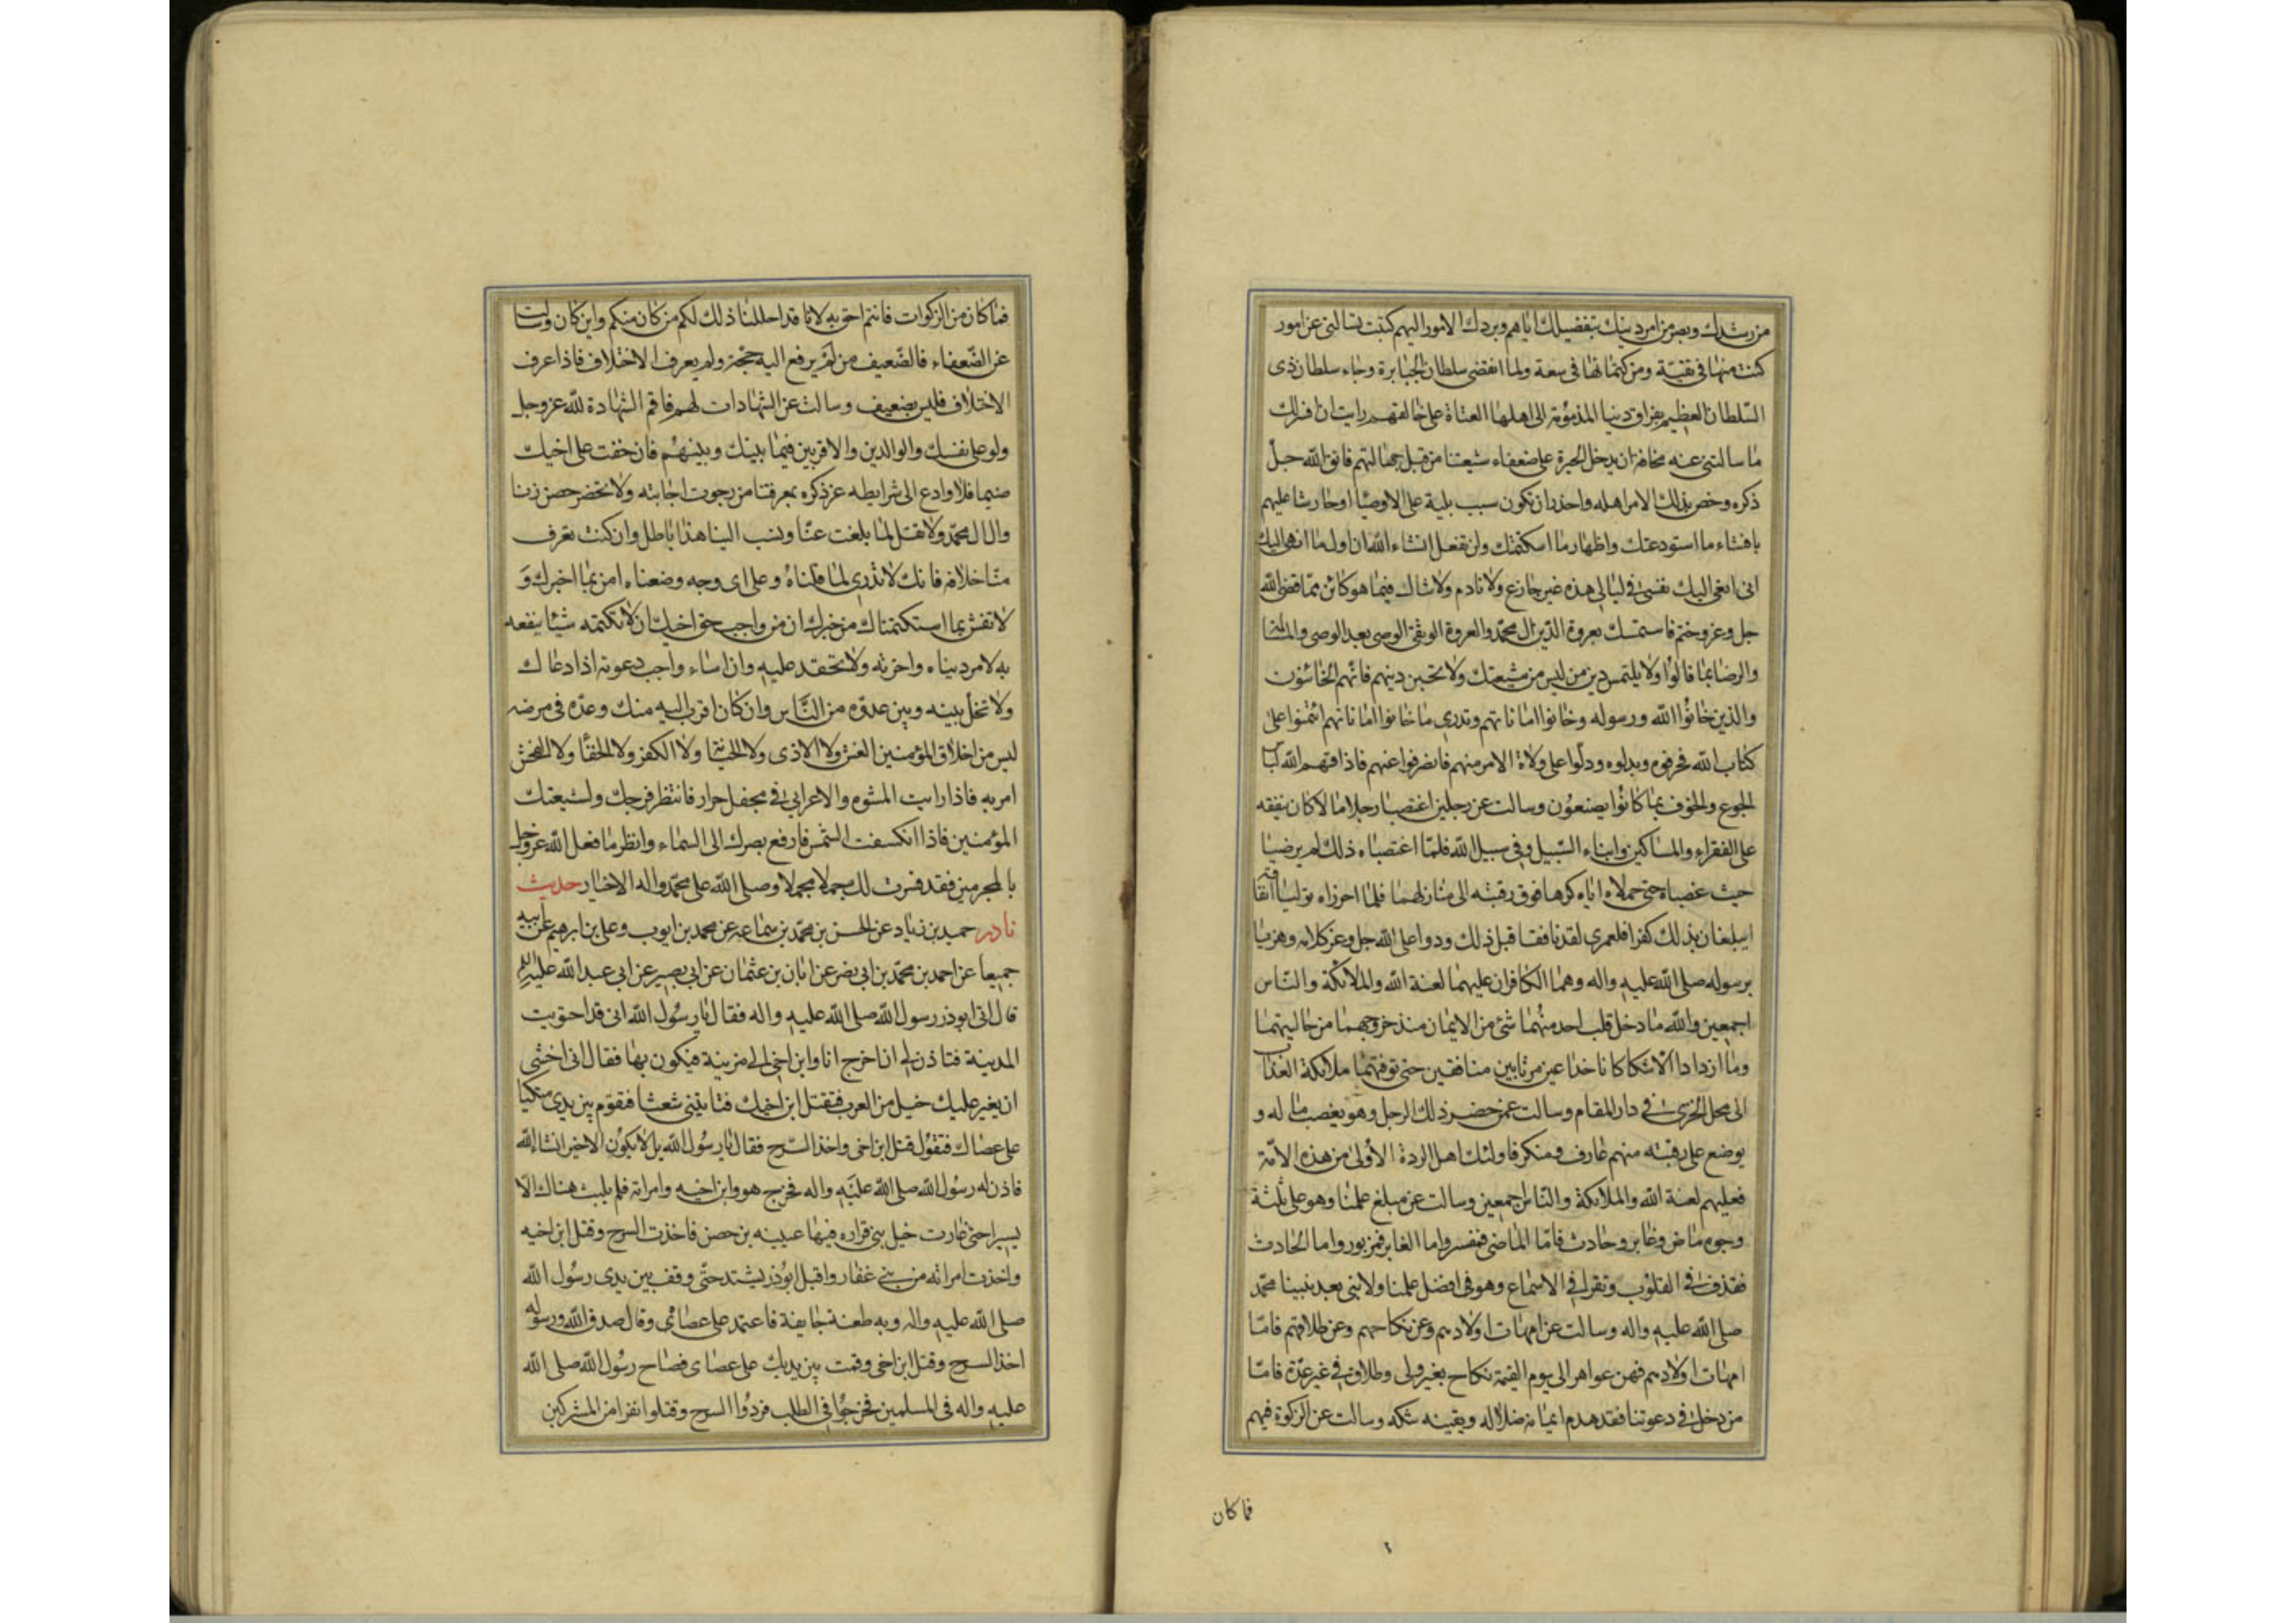 من رشدك وبصر من امر دينك بتفضيلك اياهم وبردك الامور اليهم كتبت تسالنى عن امور
كنت منها فى تقية ومن كتمانها فى سعة ولما انقضى سلطان الجبابرة وجاء سلطان ذى
السلطان العظيم بفراق دنيا المذمومة الى اهلها العتاة على خالقهم رايت ان افسرلك
ما سالتنى عنه مخافة ان يدخل الحيرة على ضعفاء شيعتنا من قبل جهالتهم فاتق الله جل
ذكره وخص بذلك الامر اهله واحذر ان تكون سبب بلية على الاوصيا او حارشا عليهم
بافشاء ما استودعتك واظهار ما استكتمتك ولن تفعل انشاء الله ان اول ما انهى اليك
انى انعى اليك نفسى فى ليالى هذه غير جازع ولا نادم ولا شاك فيما هو كائن مما قضى الله
جل وعز وختم فاستمسك بعروة الدين ال محمد والعروة الوثقى الوصى بعد الوصى والمسالمة
والرضا بما قالوا ولا يلتمس دين من ليس من شيعتك ولا تحبن دينهم فانهم الخائنون
والذين خانوا الله ورسوله وخانوا اماناتهم وتدرى ما خانوا اماناتهم ائتمنوا على
كتاب الله فحرفوه وبدلوه ودلوا على ولاة الامر منهم فانصرفوا عنهم فاذاقهم الله لباس
الجوع والخوف بما كانوا يصنعون وسالت عن رجلين اغتصبا رجلا مالا كان ينفقه
على الفقراء والمساكين وابناء السبيل وفى سبيل الله فلما اغتصباه ذلك لم يرضيا
حيث غصباه حتى حملاه اياه كرها فوق رقبته الى منازلهما فلما احرزاه توليا انفاقه
ايبلغان بذلك كفرا فلعمرى لقد نافقا قبل ذلك وردا على الله جل وعز كلامه وهزئا
برسوله صلى الله عليه واله وهما الكافران عليهما لعنة الله والملائكة والناس
اجمعين والله ما دخل قلب احد منهما شئ من الايمان منذ خروجهما من حاليتهما
وما ازدادا الا شكا كانا خداعين مرتابين منافقين حتى توفتهما ملائكة العذاب
الى محل الخزى فى دار المقام وسالت عمن حضر ذلك الرجل وهو يغصب ماله و
يوضع على رقبته منهم عارف ومنكر فاولئك اهل الردة الاولى من هذه الامة
فعليهم لعنة الله والملائكة والناس اجمعين وسالت عن مبلغ علمنا وهو على ثلثة
وجوه ماض وغابر وحادث فاما الماضى فمفسر واما الغابر فمزبور واما الحادث
فقذف فى القلوب ونقر فى الاسماع وهو فى افضل علمنا ولا نبى بعد نبينا محمد
صلى الله عليه واله وسالت عن امهات اولادهم وعن نكاحهم وعن طلاقهم فاما
امهات اولادهم فهن عواهر الى يوم القيمة نكاح بغير ولى وطلاق فى غير عدة فاما
من دخل فى دعوتنا فقد هدم ايمانه ضلاله ويقينه شكه وسالت عن الزكوة فيهم
فما كان
فما كان من الزكوات فانتم احق به لانا قد احللنا ذلك لكم من كان منكم واين كان وسالت
عن الضعفاء فالضعيف من لم يرفع اليه حجة ولم يعرف الاختلاف فاذا عرف
الاختلاف فليس بضعيف وسالت عن الشهادات لهم فاقم الشهادة لله عز وجل
ولو على نفسك والوالدين والاقربين فيما بينك وبينهم فان خفت على اخيك
ضيما فلا وادع الى شرايطه عز ذكره بمعرفتنا من رجوت اجابته ولا تحضر حصن زنا
وال ال محمد ولا تقل لما بلغت عنا ونسب الينا هذا باطل وان كنت تعرف
منا خلافه فانك لا تدرى لما قلناه وعلى اى وجه وضعناه امن بما اخبرك و
لا تفش بما استكتمناك من خبرك ان من واجب حق اخيك ان لا تكتمه شيئا ينفعه
به لامر دنياه واخرته ولا تحقد عليه وان اساء واجب دعوته اذا دعاك
ولا تخل بينه وبين عدوه من الناس وان كان اقرب اليه منك وعده فى مرضه
ليس من اخلاق المؤمنين الغش ولا الاذى ولا الخيانة ولا الكفر ولا الخنا ولا الفحش
امر به فاذا رايت المشوه والاعرابى فى جحفل جرار فانتظر فرجك ولشيعتك
المؤمنين فاذا انكسفت الشمس فارفع بصرك الى السماء وانظر ما فعل الله عز وجل
بالمجرمين فقد فسرت لك مجملا مجملا وصلى الله على محمد واله الاخيار حديث
نادر حميد بن زياد عن الحسن بن محمد بن سماعه عن محمد بن ايوب وعلى بن ابرهيم عن ابيه
جميعا عن احمد بن محمد بن ابى نصر عن ابان بن عثمان عن ابى بصير عن ابى عبد الله عليه السلم
قال اتى ابوذر رسول الله صلى الله عليه واله فقال يا رسول الله انى قد اجتويت
المدينة فتاذن لى ان اخرج انا وابن اخى الى مزينة فيكون بها فقال انى اخشى
ان يغير عليك خيل من العرب فتقتل ابن اخيك فتاتينى شعثا فتقوم بين يدى متكيا
على عصاك فتقول قتل ابن اخى واخذ السرح فقال يا رسول الله بل لا يكون الا خير انشاء الله
فاذن له رسول الله صلى الله عليه واله فخرج هو وابن اخيه وامراته فلم يلبث هناك الا
يسيرا حتى غارت خيل بنى فزاره فيها عيينه بن حصن فاخذت السرح وقتل ابن اخيه
واخذت امراته من بنى غفار واقبل ابوذر يشتد حتى وقف بين يدى رسول الله
صلى الله عليه واله وبه طعنة جايفة فاعتمد على عصاه وقال صدق الله ورسوله
اخذ السرح وقتل ابن اخى وقمت بين يديك على عصاى فصاح رسول الله صلى الله
عليه واله فى المسلمين فخرجوا فى الطلب فردوا السرح وقتلوا نفرا من المشركين